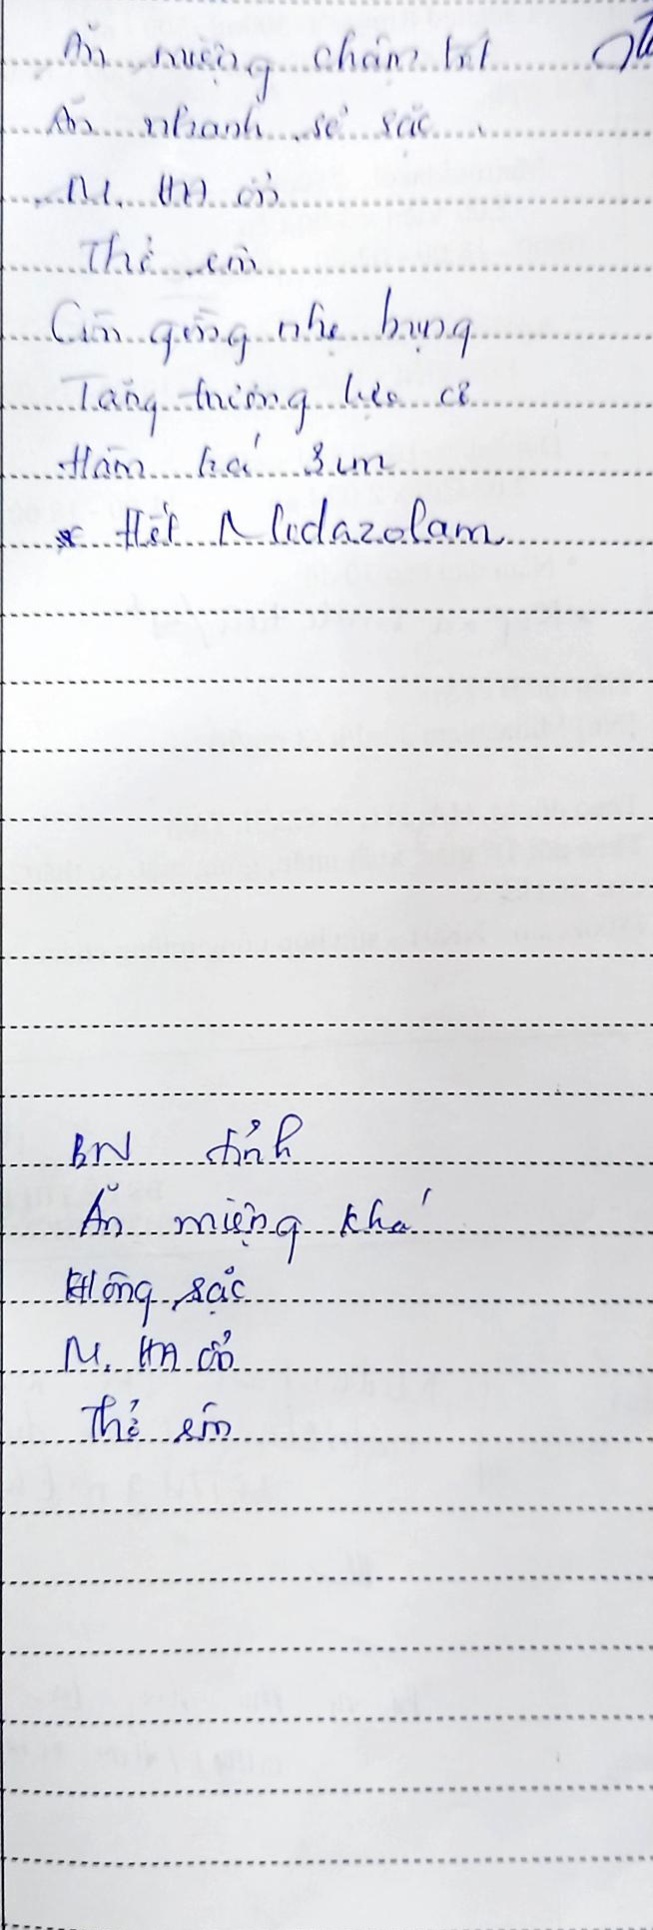 Ăn miệng chậm
Ăn nhanh sẽ sặc
M, HA ổn
Thở êm
Còn gồng nhẹ bụng
Tăng trương lực cơ
Hàm há 3cm
* Hết Midazolam
BN tỉnh
Ăn miệng khá
Không sặc
M, HA ổn
Thở êm